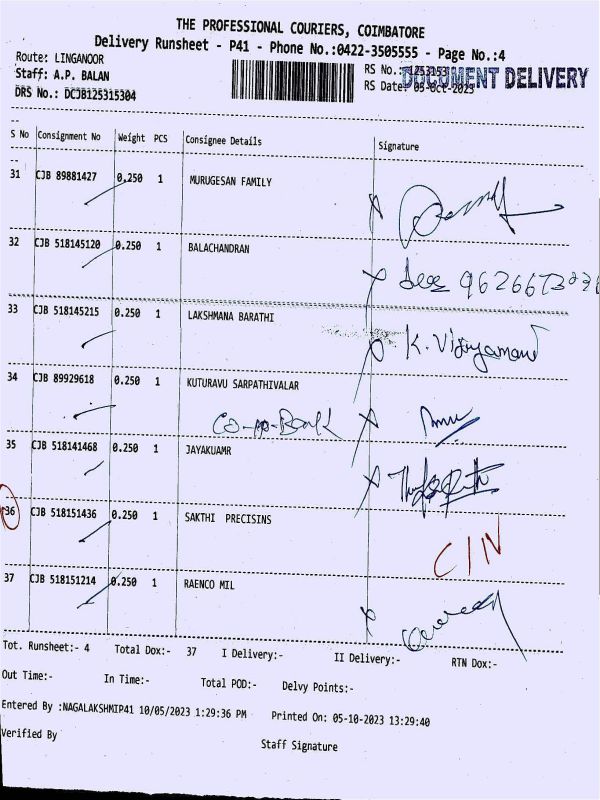 THE PROFESSIONAL COURIERS, COIMBATORE
Delivery Runsheet - P41 - Phone No.:0422-3505555 - Page No.:4
Route: LINGANOOR
Staff: A.P. BALAN
DRS No.: DCJB125315304
RS No.: 1253153
RS Date: 05-Oct-2023
DOCUMENT DELIVERY
S No Consignment No Weight PCS Consignee Details Signature
31 CJB 89881427 0.250 1 MURUGESAN FAMILY
32 CJB 518145120 0.250 1 BALACHANDRAN
33 CJB 518145215 0.250 1 LAKSHMANA BARATHI
K. Vijayamani
34 CJB 89929618 0.250 1 KUTURAVU SARPATHIVALAR
Co-op-Bank
35 CJB 518141468 0.250 1 JAYAKUAMR
36 CJB 518151436 0.250 1 SAKTHI PRECISINS
C/N
37 CJB 518151214 0.250 1 RAENCO MIL
Tot. Runsheet:- 4 Total Dox:- 37 I Delivery:- II Delivery:- RTN Dox:-
Out Time:- In Time:- Total POD:- Delvy Points:-
Entered By :NAGALAKSHMIP41 10/05/2023 1:29:36 PM Printed On: 05-10-2023 13:29:40
Verified By
Staff Signature